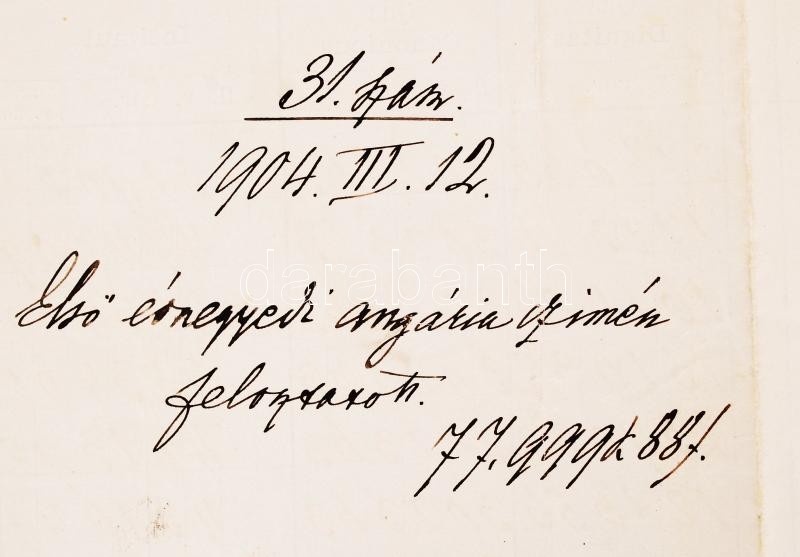 31. szám.
1904. III. 12.
darabanth
Első évnegyedi angária czimén
felosztatott.
77.999 k 88 f.